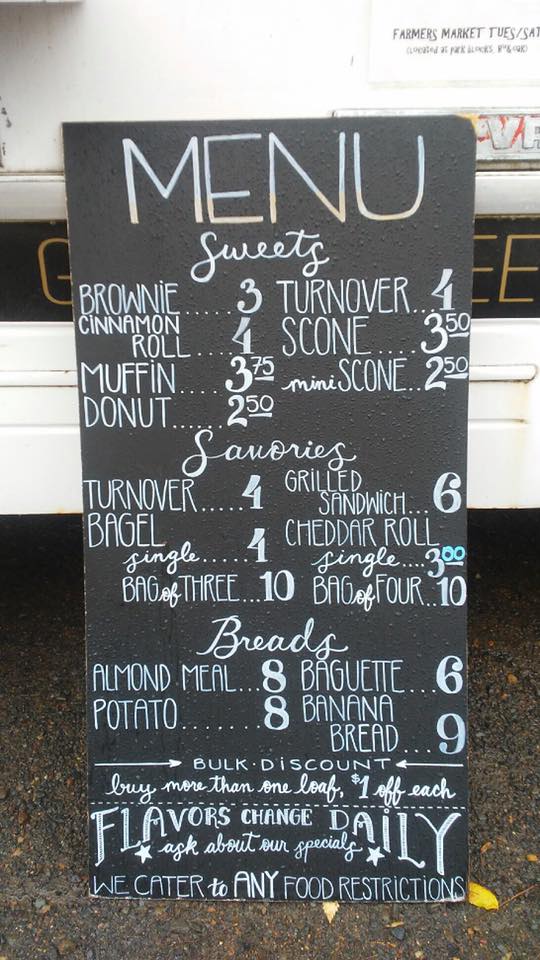 FARMERS MARKET TUES/SAT
(LOCATED AT PARK BLOCKS, 8th & OAK)
MENU
Sweets
BROWNIE.....3 TURNOVER...4
CINNAMON
ROLL....4 SCONE.....3 50
MUFFIN....3 75 mini SCONE..2 50
DONUT.....2 50
Savories
TURNOVER.....4 GRILLED
SANDWICH...6
BAGEL CHEDDAR ROLL
single.....4 single....3 00
BAG of THREE...10 BAG of FOUR..10
Breads
ALMOND MEAL...8 BAGUETTE...6
POTATO........8 BANANA
BREAD....9
BULK·DISCOUNT
buy more than one loaf, $1 off each
FLAVORS CHANGE DAILY
ask about our specials
WE CATER to ANY FOOD RESTRICTIONS